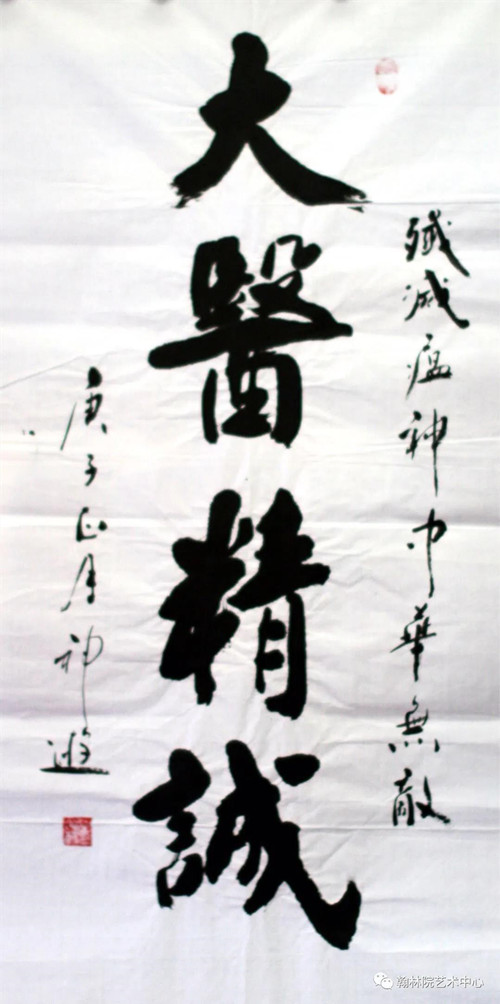 殲滅瘟神中華無敵
大醫精誠
庚子正月神遊
瀚林院艺术中心